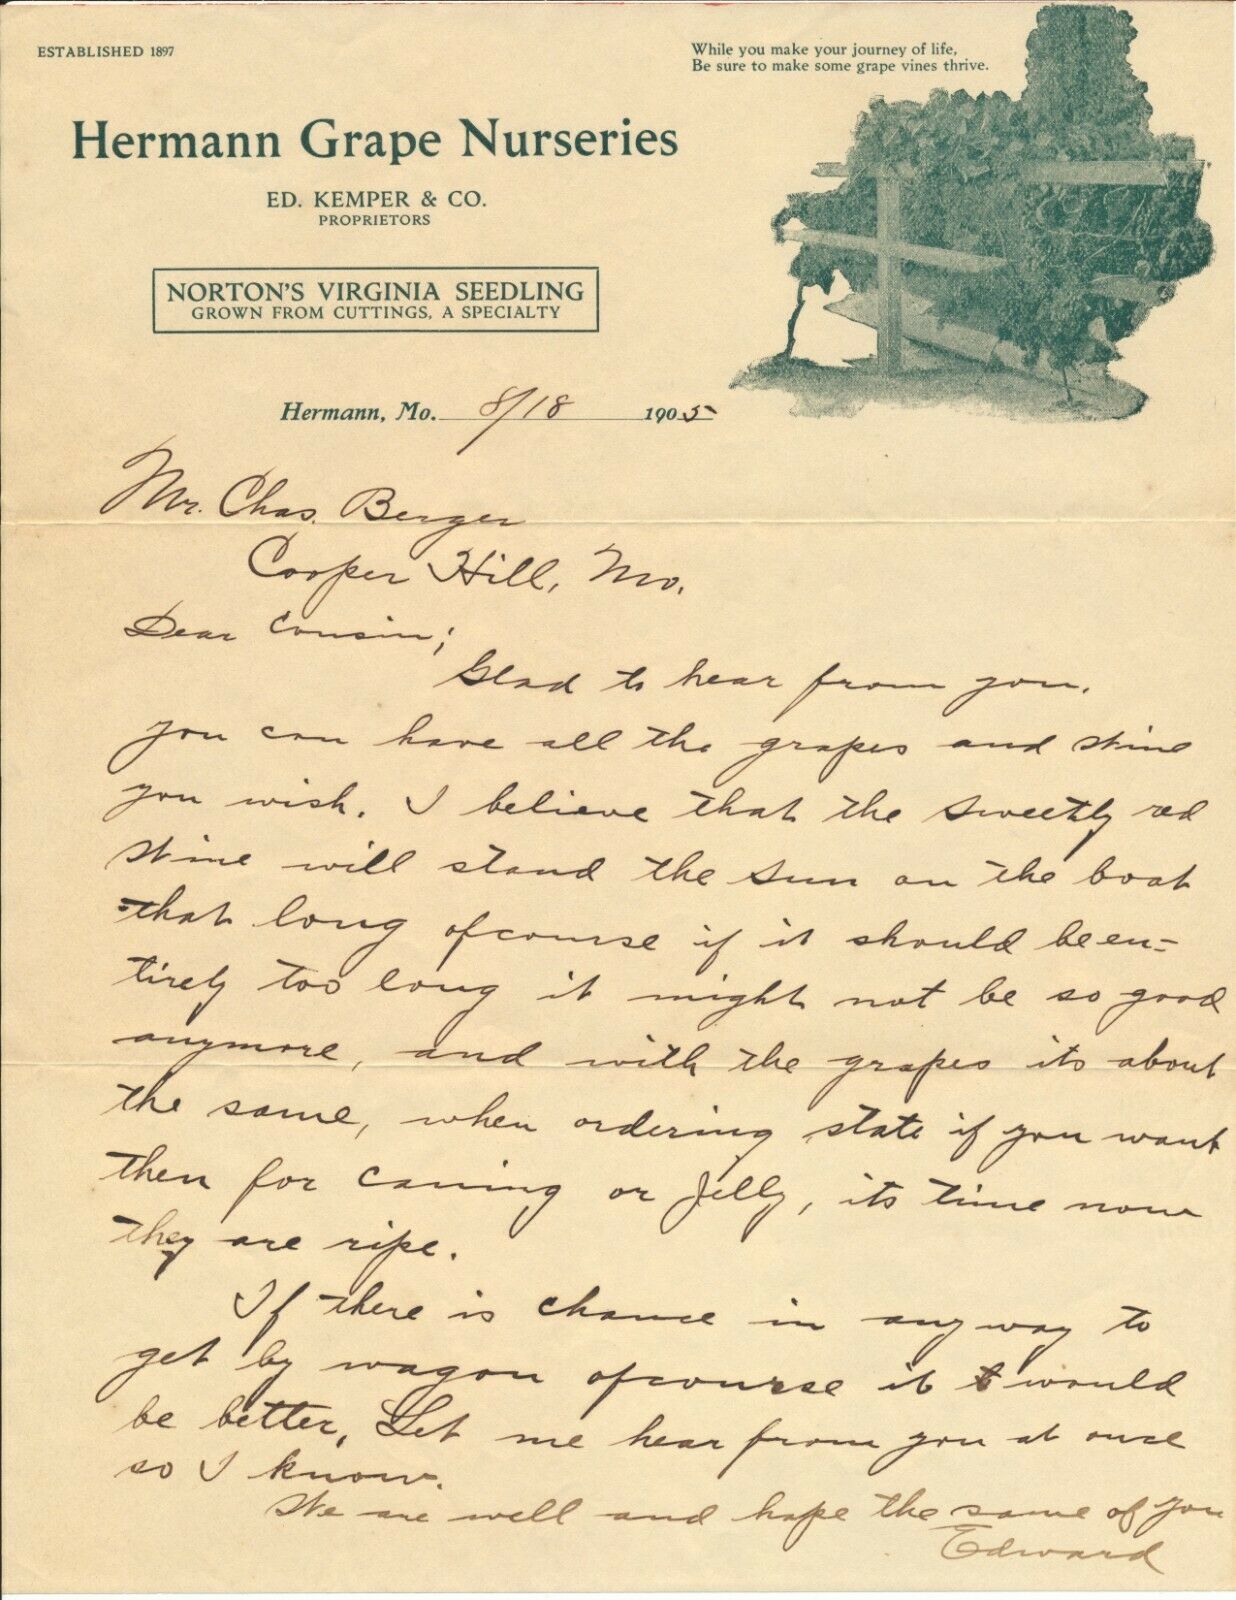 ESTABLISHED 1897
While you make your journey of life,
Be sure to make some grape vines thrive.
Hermann Grape Nurseries
ED. KEMPER & CO.
PROPRIETORS
NORTON'S VIRGINIA SEEDLING
GROWN FROM CUTTINGS, A SPECIALTY
Hermann, Mo. 8/18 1905
Mr. Chas. Berger
Cooper Hill, Mo.
Dear Cousin;
Glad to hear from you.
you can have all the grapes and wine
you wish. I believe that the sweetly red
wine will stand the sun on the boat
that long ofcourse if it should be en-
tirely too long it might not be so good
anymore, and with the grapes its about
the same, when ordering state if you want
then for caning or Jelly, its time now
they are ripe.
If there is chance in any way to
get by wagon ofcourse it would
be better, Let me hear from you at once
so I know.
We are well and hope the same of you
Edward